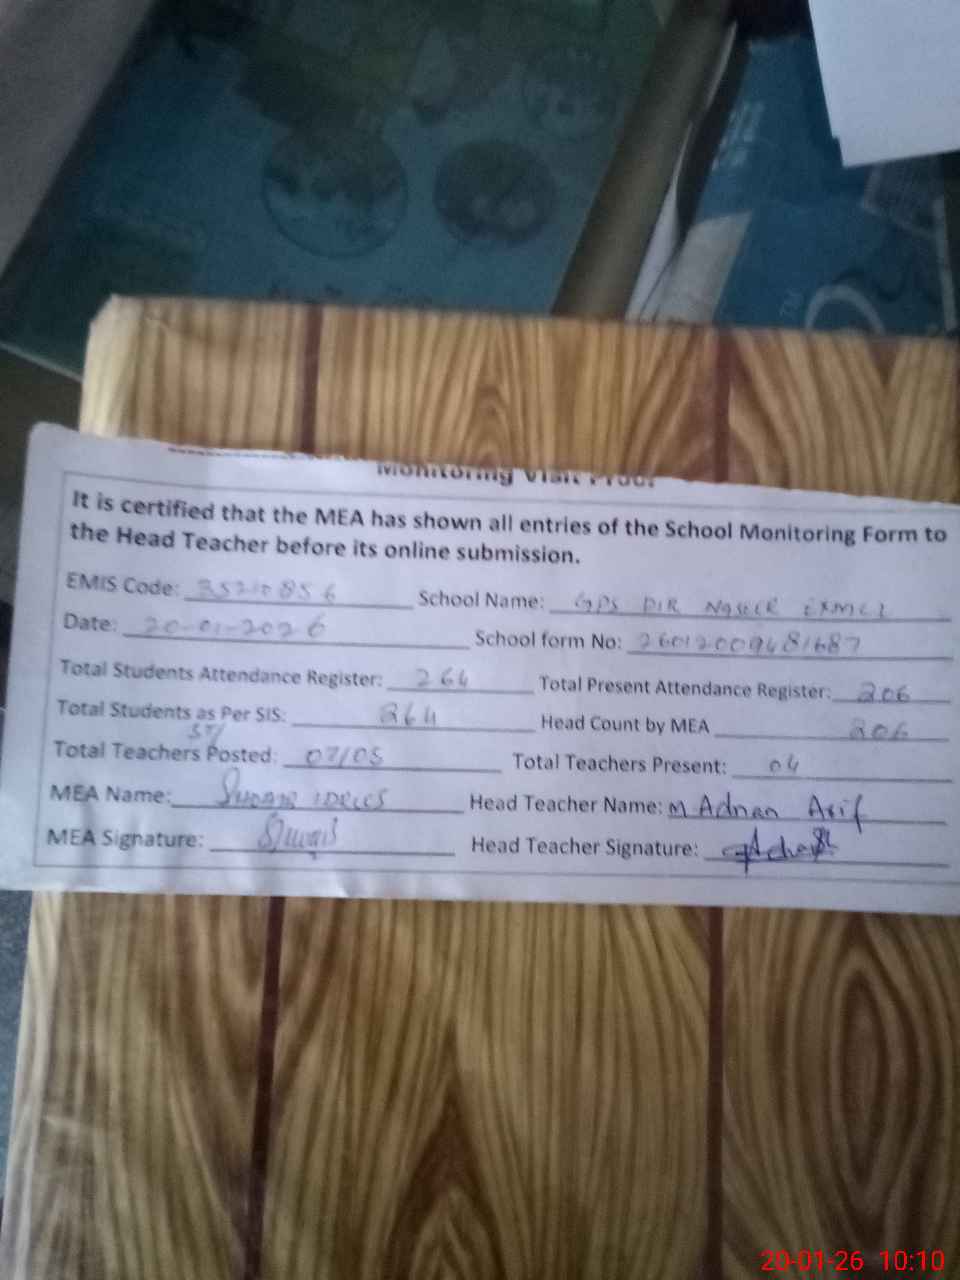 Monitoring Visit Proof
It is certified that the MEA has shown all entries of the School Monitoring Form to
the Head Teacher before its online submission.
EMIS Code: 35210856 School Name: GPS DIR
Date: 20-01-2026 School form No: 26012009481687
Total Students Attendance Register: 264 Total Present Attendance Register: 206
Total Students as Per SIS: 264 Head Count by MEA 206
Total Teachers Posted: 07/05 Total Teachers Present: 04
MEA Name: IDREES Head Teacher Name: M Adnan Asif
MEA Signature: Head Teacher Signature:
20-01-26 10:10